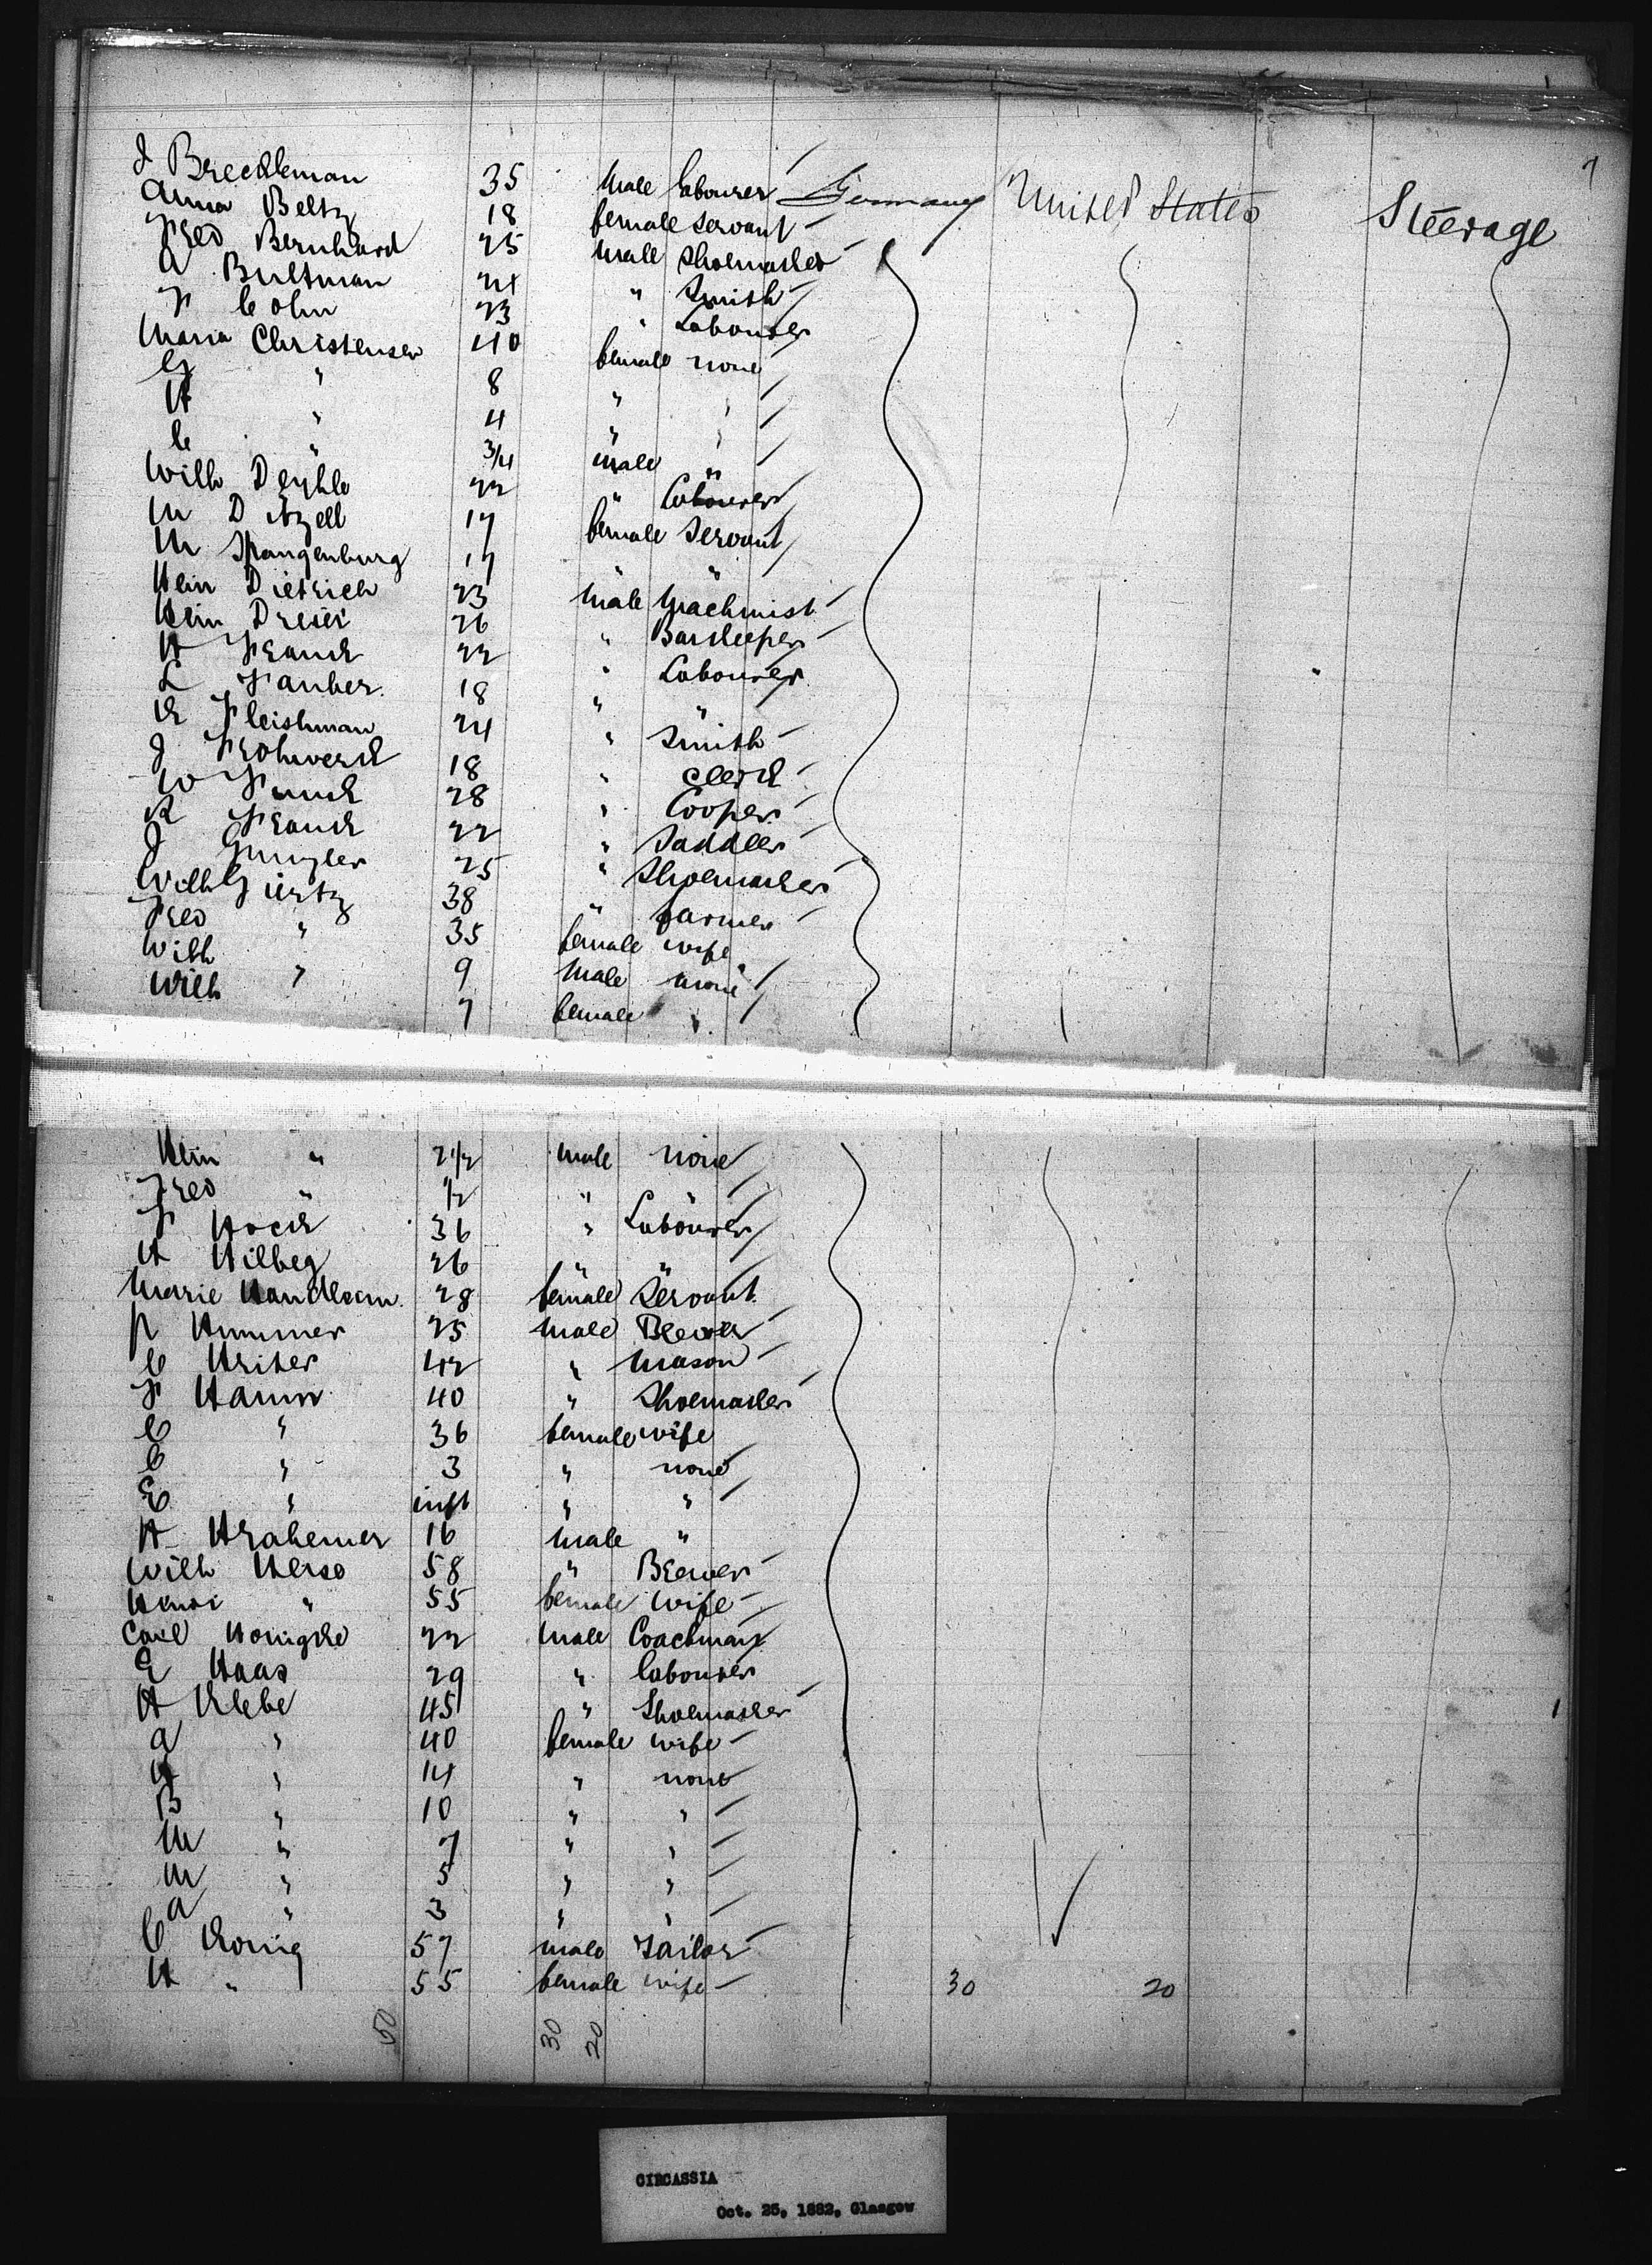 7
J Breckleman 35 male labourer Germany United States Steerage
Anna Beltz 18 female servant
Fred Bernhard 25 male Shoemaker
A Bultman 24 " Smith
F Cohn 23 " Labourer
Maria Christensen 40 female none
G " 8 " "
H " 4 " "
C " 3/4 male "
Wilh Deyhle 22 " Labourer
M Ditzell 17 female Servant
M Spangenburg 17 " "
Hein Dietrich 23 male Machinist
Hein Dreier 26 " Barkeeper
H Franck 22 " Labourer
L Fauber 18 " "
K Fleishman 24 " Smith
J Frohwerk 18 " Clerk
W Funck 28 " Cooper
K Franck 22 " Saddler
J 25 " Shoemaker
Wilh Giertz 38 " farmer
Fred " 35 female wife
Wilh 9 male none
Wilh " 7 female "
Hein " 2 1/2 male none
Fred " 1/2 " "
F Hock 36 " Labourer
H Hilbeg 26 " "
Marie 28 female Servant
P Hummer 25 male Brewer
C Hriter 42 " mason
F Hamm 40 " Shoemaker
C " 36 female wife
C " 3 " none
E " inft " "
H 16 male "
Wilh Herso 58 " Brewer
Henri " 55 female wife
Carl Honigke 22 male Coachman
E Haas 29 " labourer
H Klebe 45 " Shoemaker
A " 40 female wife
H " 14 " none
B " 10 " "
M " 7 " "
M " 5 " "
A " 3 " "
C Konig 57 male Tailor
H " 55 female wife 30 20
50 30 20
CIRCASSIA
Oct. 25, 1882, Glasgow